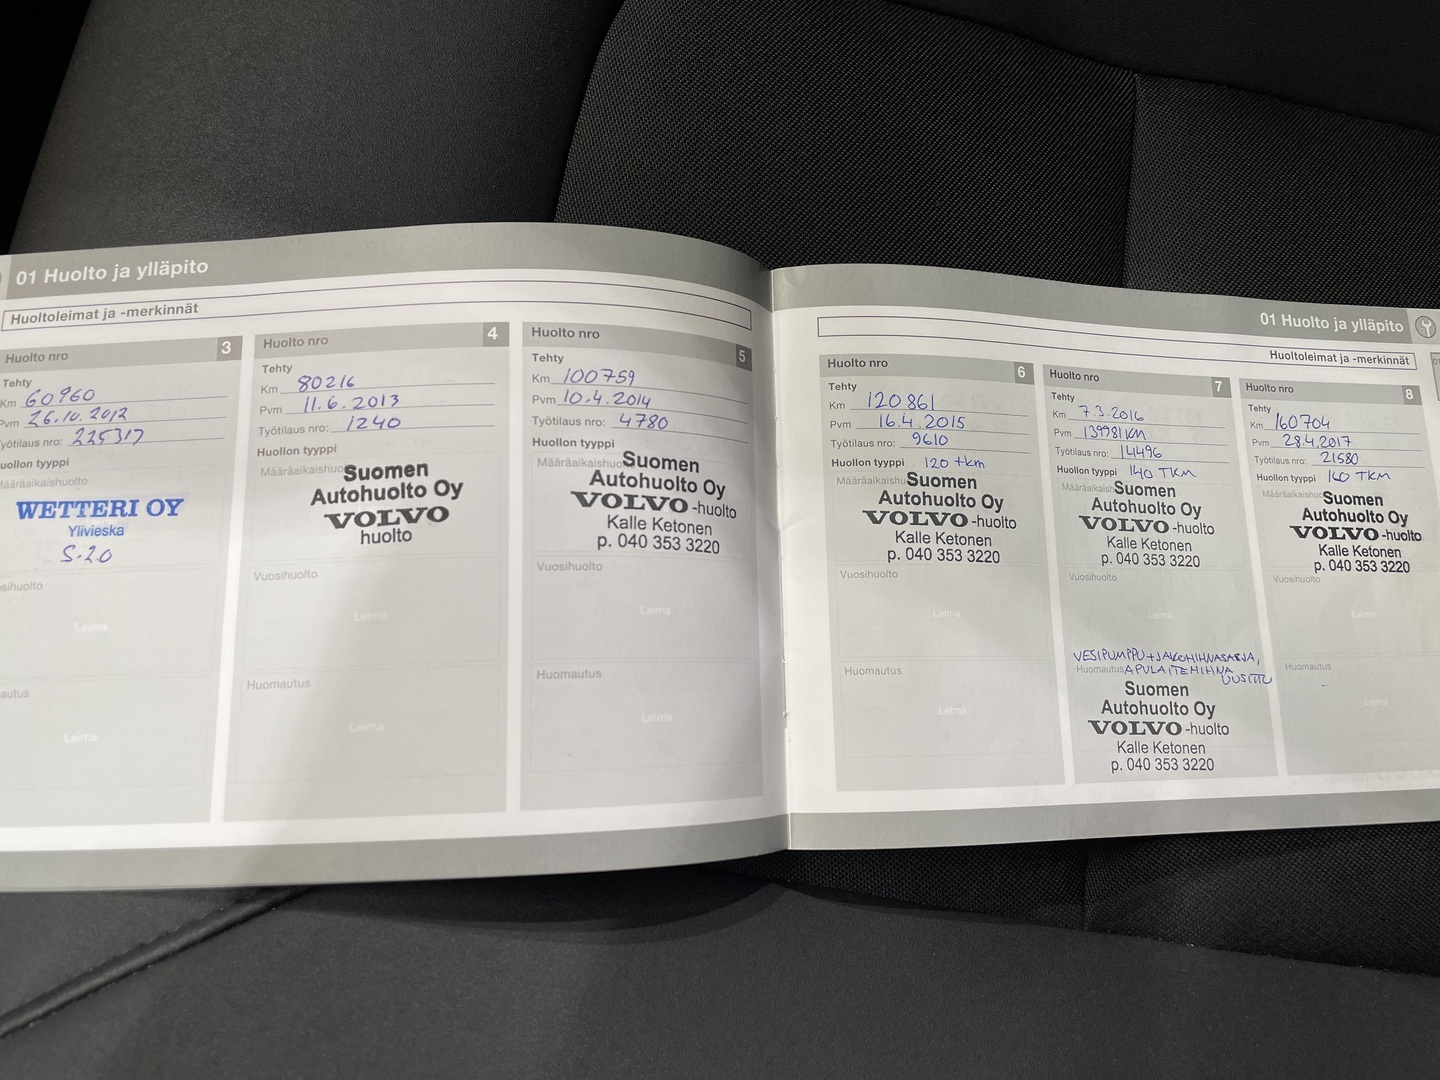 01 Huolto ja ylläpito
Huoltoleimat ja -merkinnät
Huolto nro 3
Tehty
Km 60960
Pvm 26.10.2012
Työtilaus nro: 225317
uollon tyyppi
Määräaikaishuolto
WETTERI OY
Ylivieska
S-20
osihuolto
Leima
autus
Leima
Huolto nro 4
Tehty
Km 80216
Pvm 11.6.2013
Työtilaus nro: 1240
Huollon tyyppi
Määräaikaishuo
Suomen
Autohuolto Oy
VOLVO
huolto
Vuosihuolto
Leima
Huomautus
Leima
Huolto nro 5
Tehty
Km 100759
Pvm 10.4.2014
Työtilaus nro: 4780
Huollon tyyppi
Määräaikaishuo
Suomen
Autohuolto Oy
VOLVO-huolto
Kalle Ketonen
p. 040 353 3220
Vuosihuolto
Leima
Huomautus
Leima
01 Huolto ja ylläpito
Huoltoleimat ja -merkinnät
01
Huolto nro 6
Tehty
Km 120861
Pvm 16.4.2015
Työtilaus nro: 9610
Huollon tyyppi 120 tkm
Määräaikaishu
Suomen
Autohuolto Oy
VOLVO-huolto
Kalle Ketonen
p. 040 353 3220
Vuosihuolto
Leima
Huomautus
Leima
Huolto nro 7
Tehty
Km 7.3.2016
Pvm 139981 KM
Työtilaus nro: 14496
Huollon tyyppi 140 TKM
Määräaikaish
Suomen
Autohuolto Oy
VOLVO-huolto
Kalle Ketonen
p. 040 353 3220
Vuosihuolto
Leima
VESIPUMPPU+JAKOHIHNASARJA,
Huomautus APULAITEHIHNA
UUSITTU
Suomen
Autohuolto Oy
VOLVO-huolto
Kalle Ketonen
p. 040 353 3220
Huolto nro 8
Tehty
Km 160704
Pvm 28.4.2017
Työtilaus nro: 21580
Huollon tyyppi 160 TKM
Määräaikaishuo
Suomen
Autohuolto Oy
VOLVO-huolto
Kalle Ketonen
p. 040 353 3220
Vuosihuolto
Leima
Huomautus
Leima